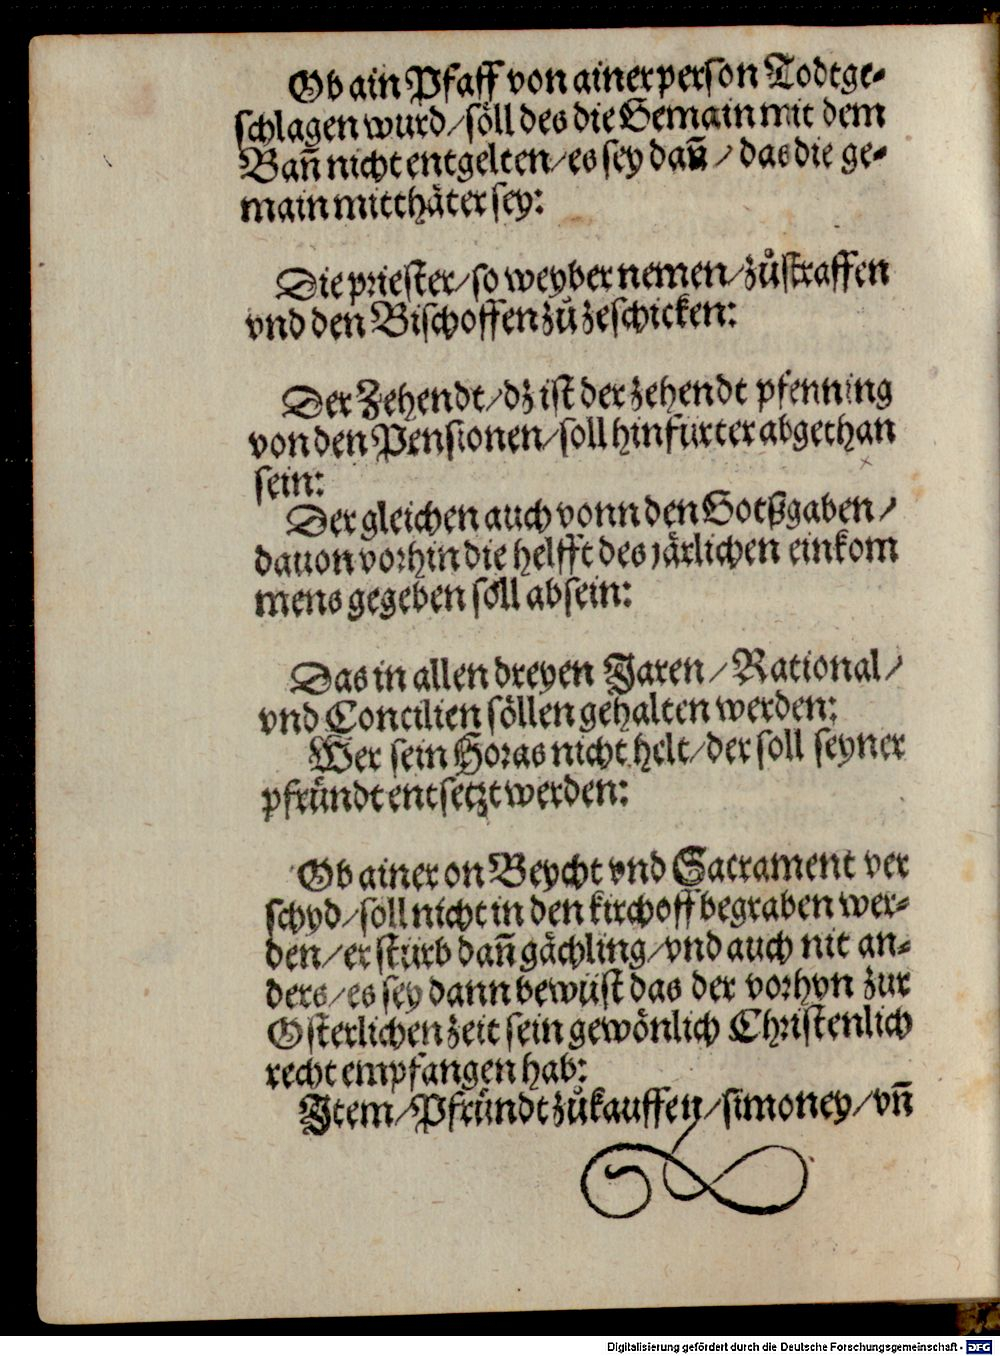 Ob ain Pfaff von ainer person Todtge-
schlagen wurd/ söll des die Gemain mit dem
Bañ nicht entgelten/ es sey dañ/ das die ge-
main mitthäter sey:
Die priester/ so weyber nemen/ zůstraffen
vnd den Bischoffen zů zeschicken:
Der Zehendt/ dz ist der zehendt pfenning
von den Pensionen/ soll hinfürter abgethan
sein:
Der gleichen auch vonn den Gotßgaben/
dauon vorhin die helfft des järlichen einkom
mens gegeben söll absein:
Das in allen dreyen Jaren/ Rational/
vnd Concilien söllen gehalten werden:
Wer sein Horas nicht helt/ der soll seyner
pfründt entsetzt werden:
Ob ainer on Beycht vnd Sacrament ver
schyd/ soll nicht in den kirchoff begraben wer-
den/ er stürb dañ gächling/ vnd auch nit an-
ders/ es sey dann bewüst das der vorhyn zur
Osterlichen zeit sein gewönlich Christenlich
recht empfangen hab:
Item/ Pfründt zůkauffen/ simoney/ vñ
Digitalisierung gefördert durch die Deutsche Forschungsgemeinschaft - DFG